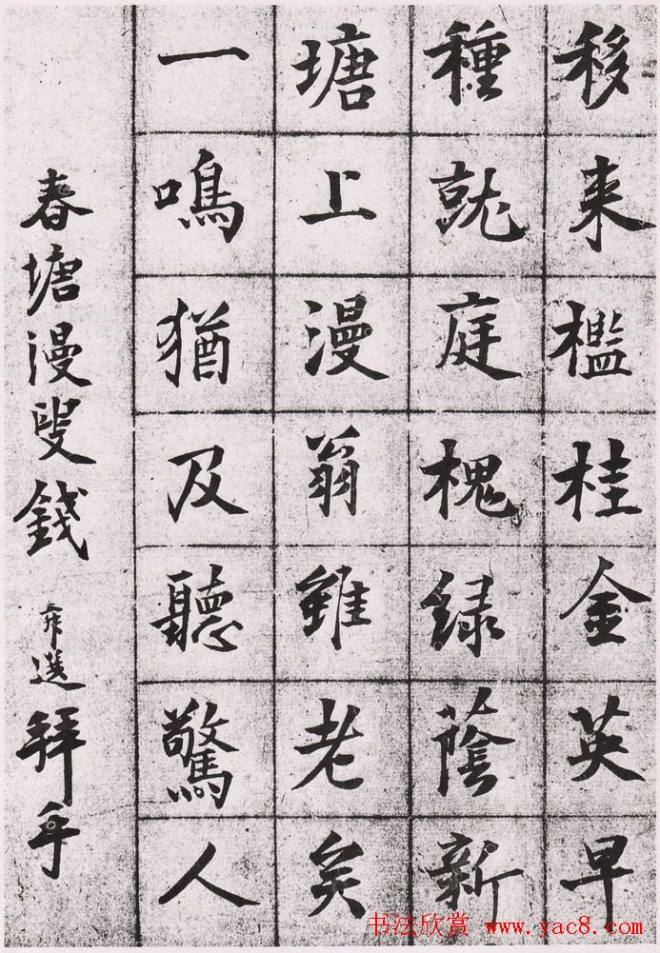 移来檻桂金英早
種就庭槐緑蔭新
塘上漫翁雖老矣
一鳴猶及聽驚人
春塘漫叟錢 選拜手
书法欣赏 www.yac8.com